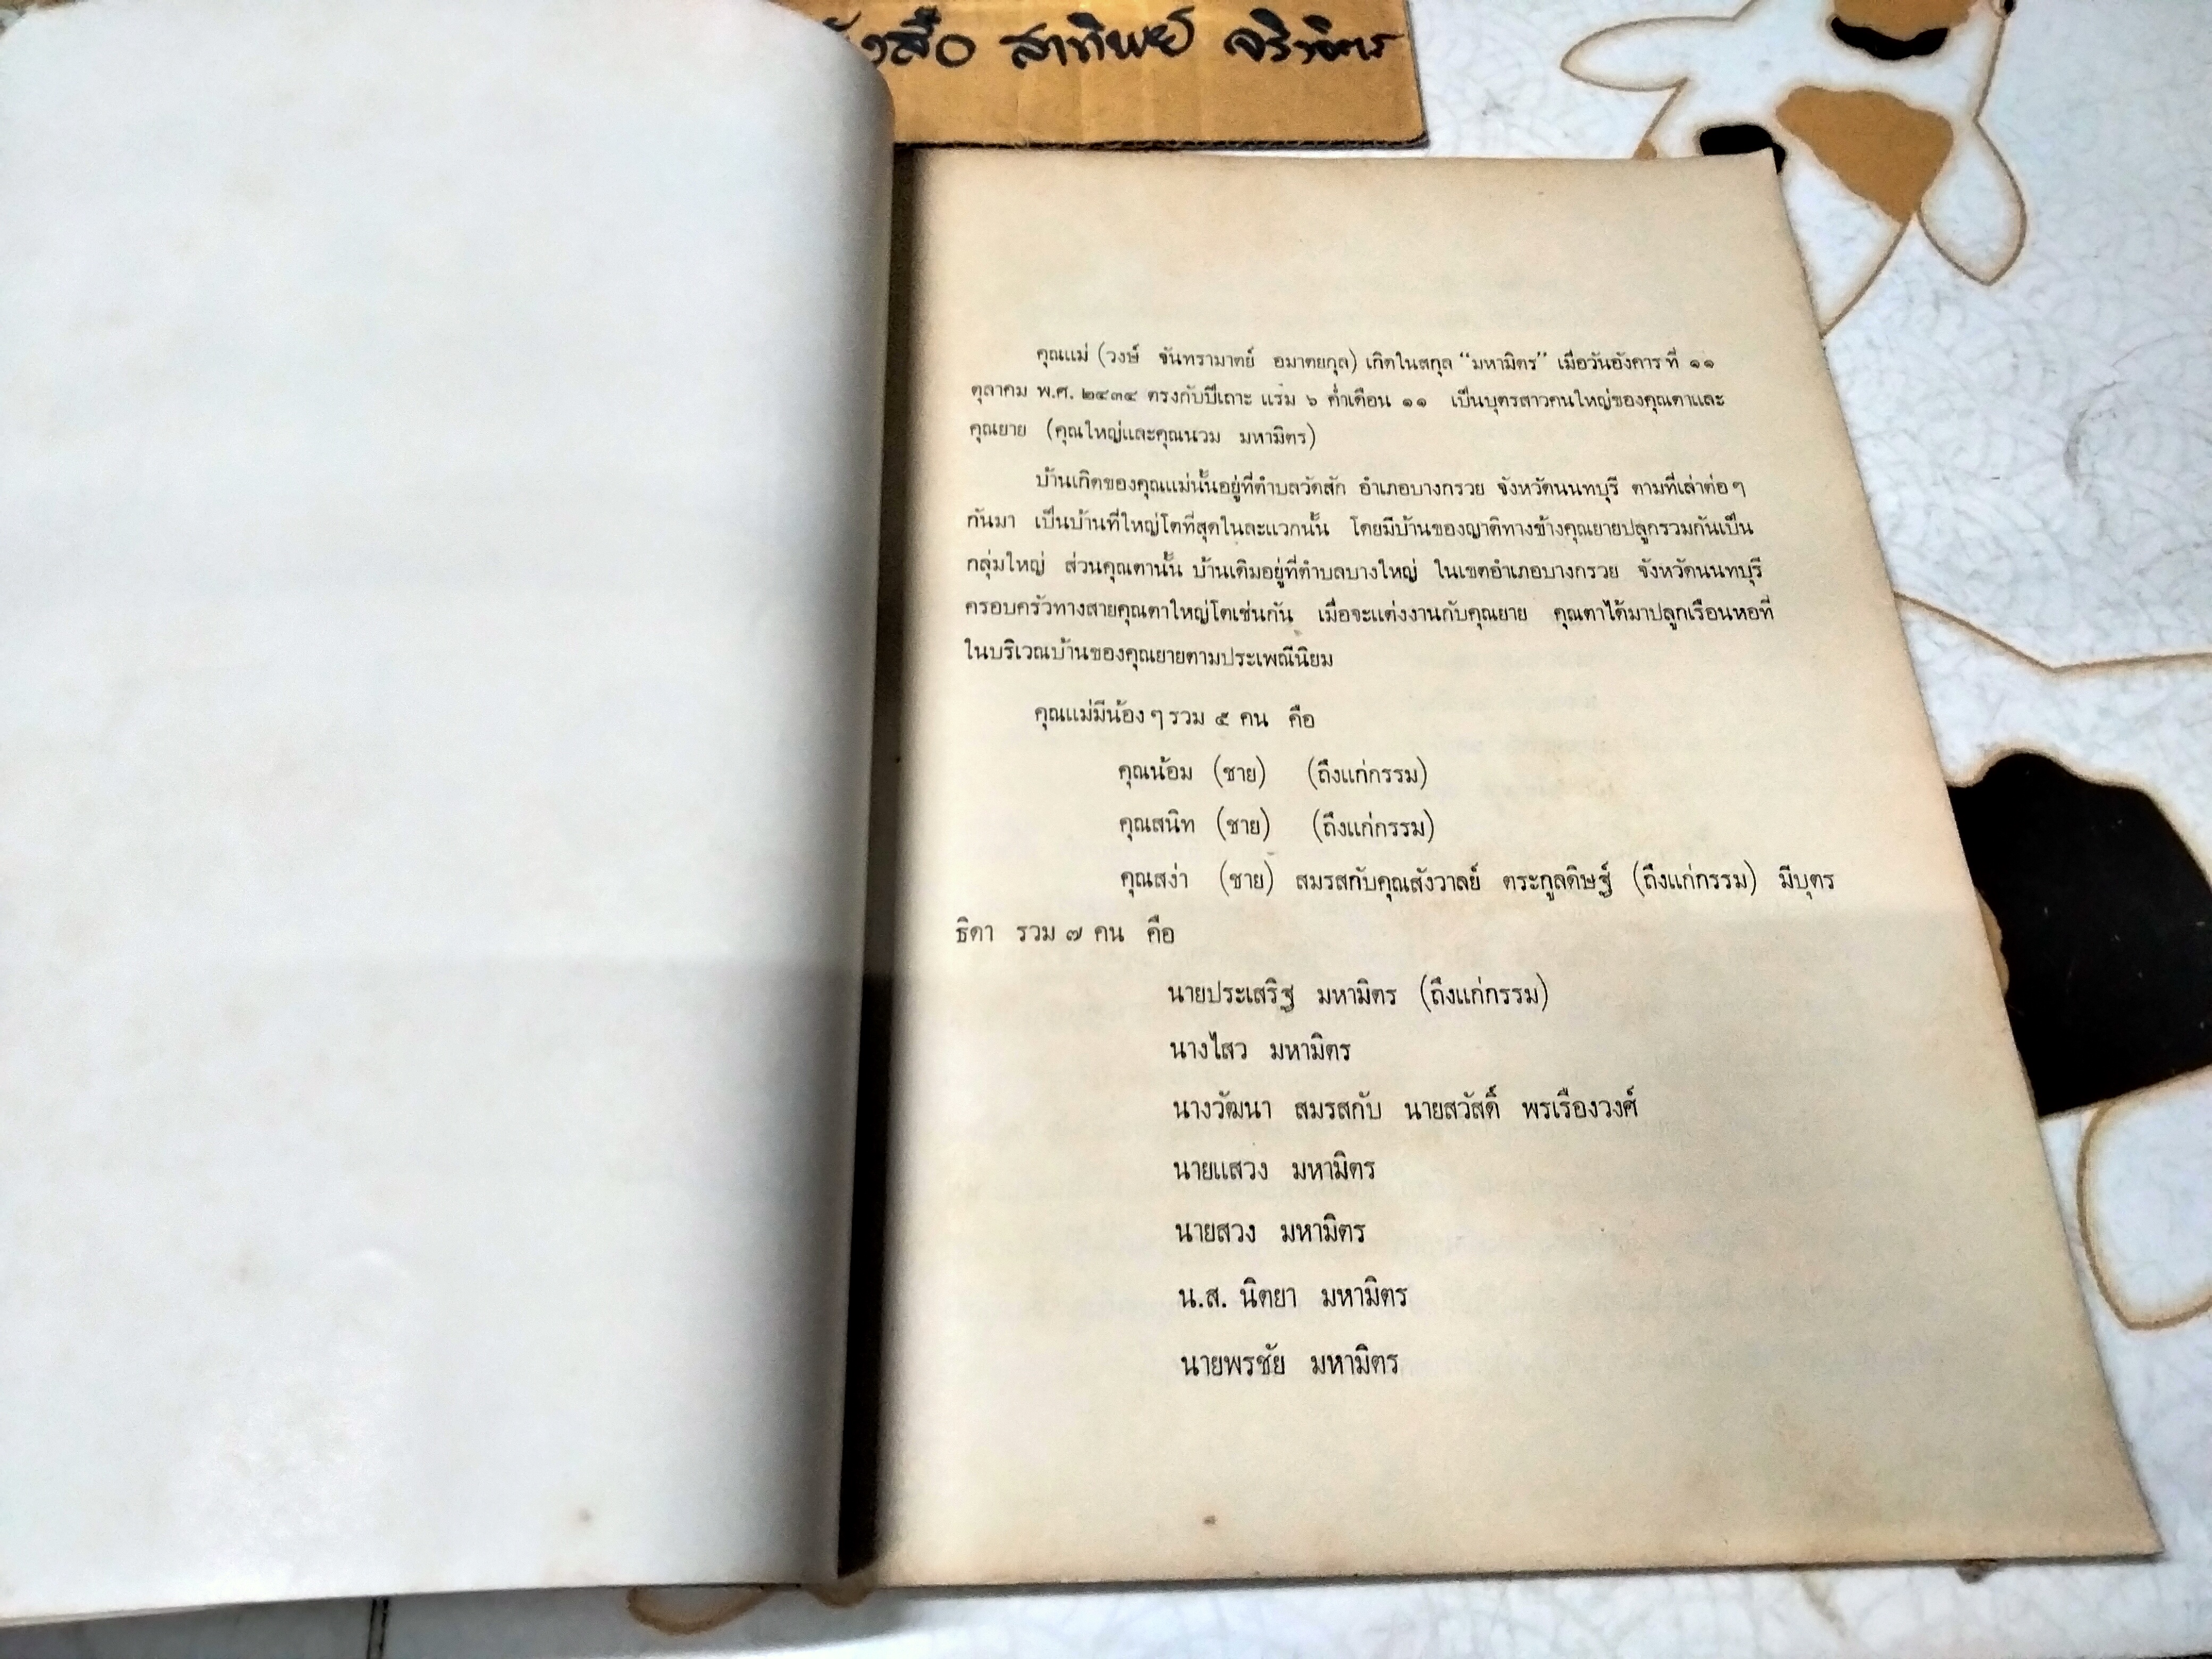 สาทิพย์
คุณแม่ (วงษ์ จันทรามาตย์ อมาตยกุล) เกิดในสกุล “มหามิตร” เมื่อวันอังคารที่ ๑๑
ตุลาคม พ.ศ. ๒๔๓๔ ตรงกับปีเถาะ แรม ๖ ค่ำเดือน ๑๑ เป็นบุตรสาวคนใหญ่ของคุณตาและ
คุณยาย (คุณใหญ่และคุณนวม มหามิตร)
บ้านเกิดของคุณแม่นั้นอยู่ที่ตำบลวัดสัก อำเภอบางกรวย จังหวัดนนทบุรี ตามที่เล่าต่อๆ
กันมา เป็นบ้านที่ใหญ่โตที่สุดในละแวกนั้น โดยมีบ้านของญาติทางข้างคุณยายปลูกรวมกันเป็น
กลุ่มใหญ่ ส่วนคุณตานั้น บ้านเดิมอยู่ที่ตำบลบางใหญ่ ในเขตอำเภอบางกรวย จังหวัดนนทบุรี
ครอบครัวทางสายคุณตาใหญ่โตเช่นกัน เมื่อจะแต่งงานกับคุณยาย คุณตาได้มาปลูกเรือนหอที่
ในบริเวณบ้านของคุณยายตามประเพณีนิยม
คุณแม่มีน้องๆ รวม ๕ คน คือ
คุณน้อม (ชาย) (ถึงแก่กรรม)
คุณสนิท (ชาย) (ถึงแก่กรรม)
คุณสง่า (ชาย) สมรสกับคุณสังวาลย์ ตระกูลดิษฐ์ (ถึงแก่กรรม) มีบุตร
ธิดา รวม ๗ คน คือ
นายประเสริฐ มหามิตร (ถึงแก่กรรม)
นางไสว มหามิตร
นางวัฒนา สมรสกับ นายสวัสดิ์ พรเรืองวงศ์
นายแสวง มหามิตร
นายสวง มหามิตร
น.ส. นิตยา มหามิตร
นายพรชัย มหามิตร